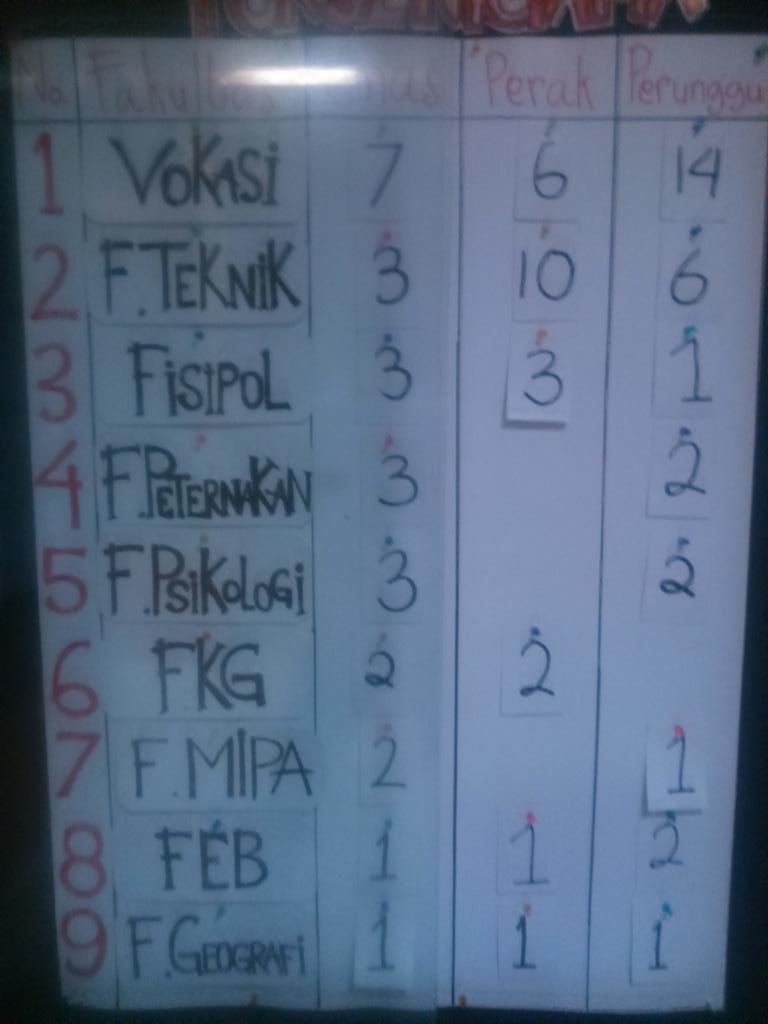 No Fakultas Emas Perak Perunggu
1 VOKASI 7 6 14
2 F.TEKNIK 3 10 6
3 FISIPOL 3 3 1
4 F.PETERNAKAN 3 2
5 F.PSIKOLOGI 3 2
6 FKG 2 2
7 F.MIPA 2 1
8 FEB 1 1 2
9 F.GEOGRAFI 1 1 1